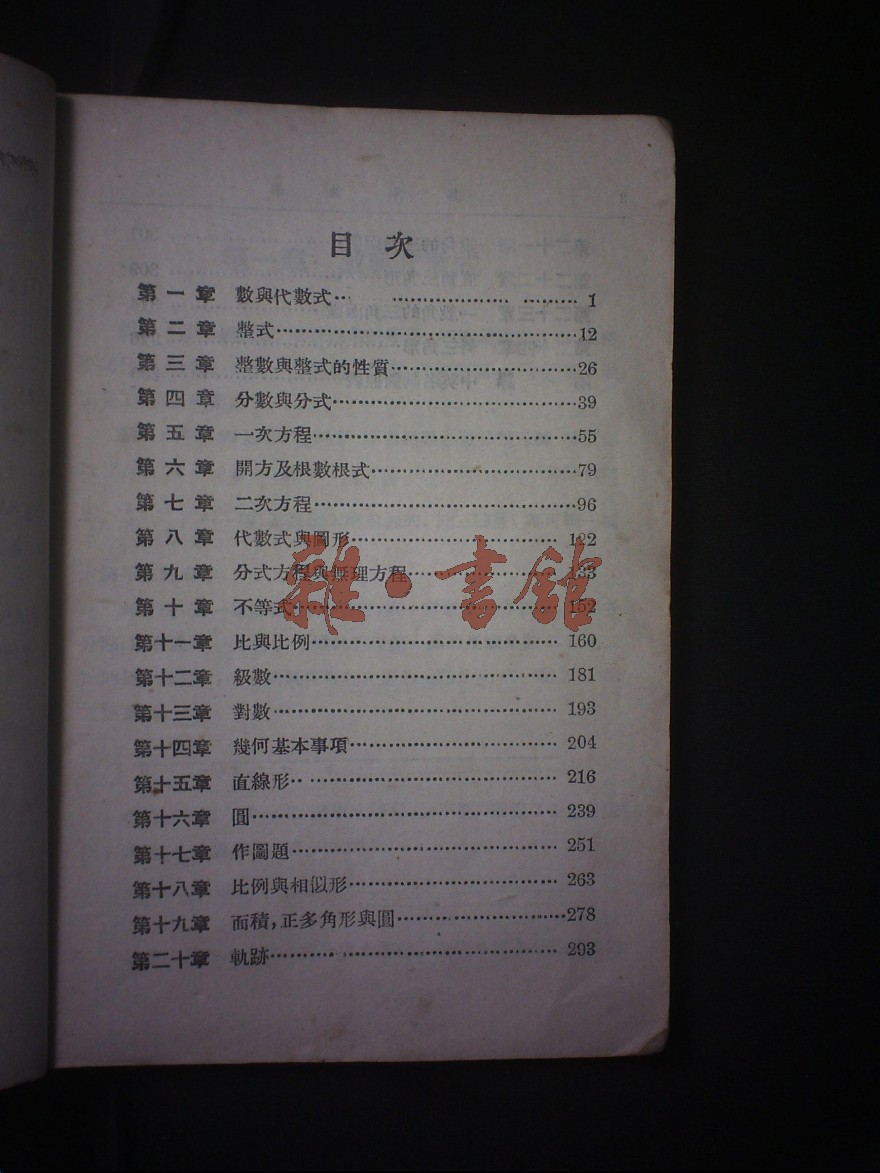 目次
第一章 數與代數式…………………………1
第二章 整式…………………………12
第三章 整數與整式的性質…………………………26
第四章 分數與分式…………………………39
第五章 一次方程…………………………55
第六章 開方及根數根式…………………………79
第七章 二次方程…………………………96
第八章 代數式與圖形…………………………122
第九章 分式方程與無理方程…………………………133
第十章 不等式…………………………152
雜·書館
第十一章 比與比例…………………………160
第十二章 級數…………………………181
第十三章 對數…………………………193
第十四章 幾何基本事項…………………………204
第十五章 直線形…………………………216
第十六章 圓…………………………239
第十七章 作圖題…………………………251
第十八章 比例與相似形…………………………263
第十九章 面積,正多角形與圓…………………………278
第二十章 軌跡…………………………293